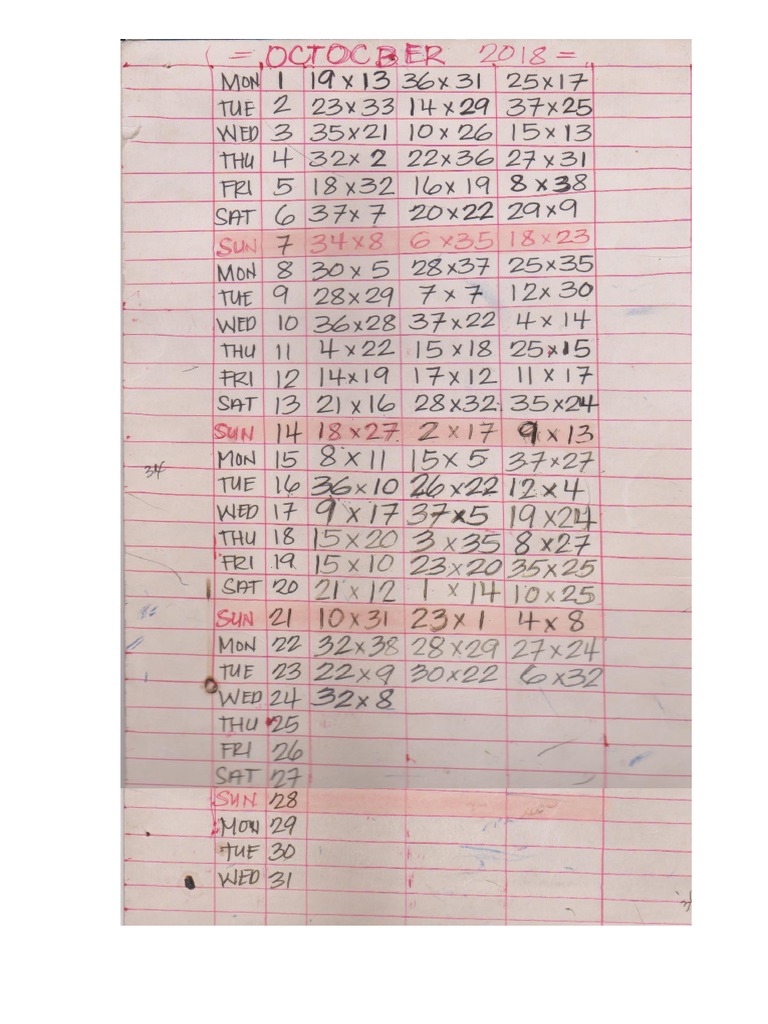 = OCTOCBER 2018 =
MON 1 19 x 13 36 x 31 25 x 17
TUE 2 23 x 33 14 x 29 37 x 25
WED 3 35 x 21 10 x 26 15 x 13
THU 4 32 x 2 22 x 36 27 x 31
FRI 5 18 x 32 16 x 19 8 x 38
SAT 6 37 x 7 20 x 22 29 x 9
SUN 7 34 x 8 6 x 35 18 x 23
MON 8 30 x 5 28 x 37 25 x 35
TUE 9 28 x 29 7 x 7 12 x 30
WED 10 36 x 28 37 x 22 4 x 14
THU 11 4 x 22 15 x 18 25 x 15
FRI 12 14 x 19 17 x 12 11 x 17
SAT 13 21 x 16 28 x 32 35 x 24
SUN 14 18 x 27 2 x 17 9 x 13
MON 15 8 x 11 15 x 5 37 x 27
34
TUE 16 36 x 10 26 x 22 12 x 4
WED 17 9 x 17 37 x 5 19 x 24
THU 18 15 x 20 3 x 35 8 x 27
FRI 19 15 x 10 23 x 20 35 x 25
SAT 20 21 x 12 1 x 14 10 x 25
SUN 21 10 x 31 23 x 1 4 x 8
MON 22 32 x 38 28 x 29 27 x 24
TUE 23 22 x 9 30 x 22 6 x 32
WED 24 32 x 8
THU 25
FRI 26
SAT 27
SUN 28
MON 29
TUE 30
WED 31